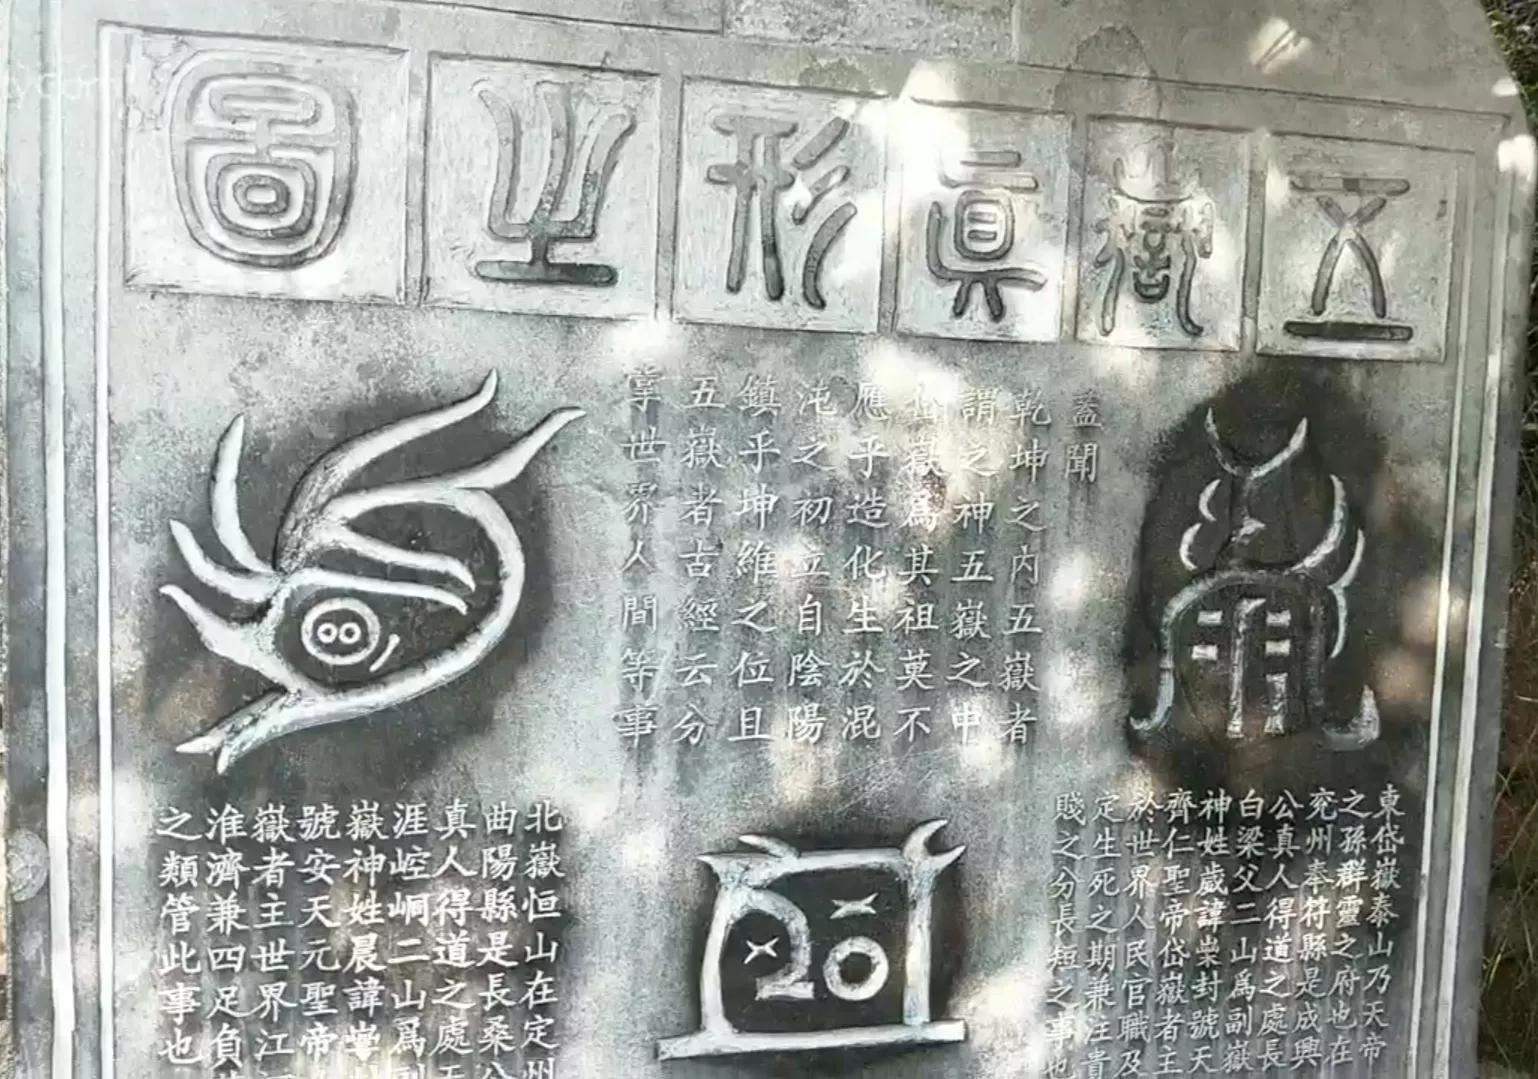 五嶽真形之圖
蓋聞
乾坤之內五嶽者
謂之神五嶽之中
岱嶽為其祖莫不
應乎造化生於混
沌之初立自陰陽
鎮乎坤維之位且
五嶽者古經云分
掌世界人間等事
東岱嶽泰山乃天帝
之孫群靈之府也在
兗州奉符縣是成興
公真人得道之處長
白梁父二山為副嶽
神姓歲諱崇封號天
齊仁聖帝岱嶽者主
於世界人民官職及
定生死之期兼注貴
賤之分長短之事也
北嶽恒山在定州
曲陽縣是長桑公
真人得道之處
涯崆峒二山為副
嶽神姓晨諱
號安天元聖帝
嶽者主世界江
淮濟兼四足負
之類管此事也